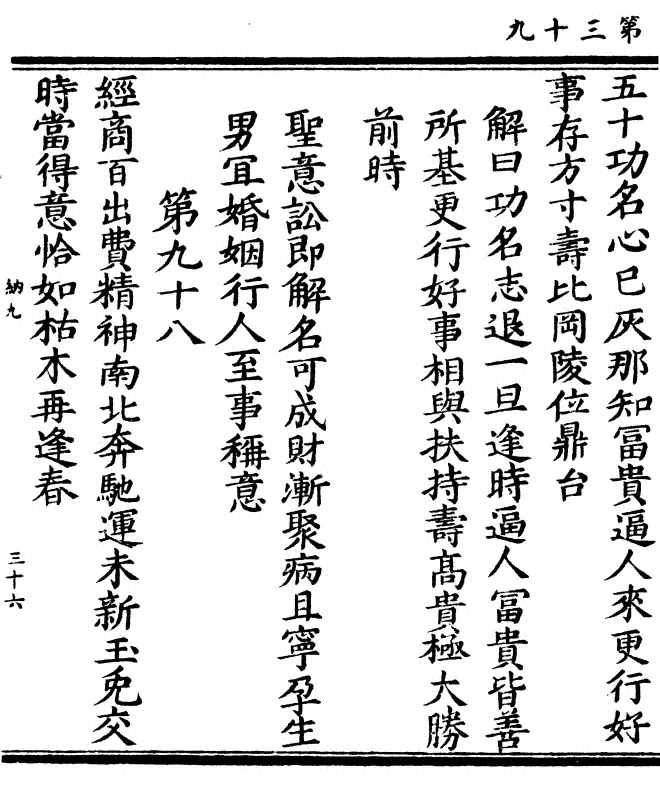 第三十九
五十功名心已灰那知冨貴逼人來更行好
事存方寸壽比岡陵位鼎台
解曰功名志退一旦逢時逼人冨貴皆善
所基更行好事相與扶持壽髙貴極大勝
前時
聖意訟即解名可成財漸聚病且寧孕生
男冝婚姻行人至事稱意
第九十八
經商百出費精神南北奔馳運未新玉兎交
時當得意恰如枯木再逢春
納九
三十六